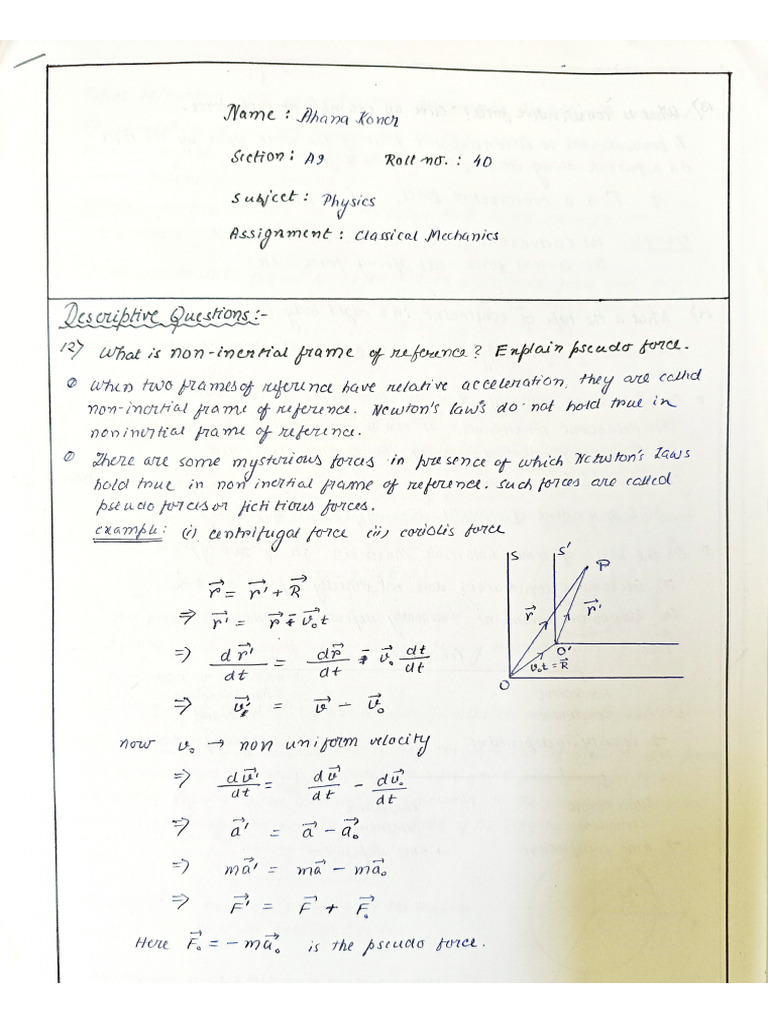 Name : Ahana Koner
Section : A9 Roll no. : 40
Subject : Physics
Assignment : Classical Mechanics
Descriptive Questions :-
12) What is non-inertial frame of reference? Explain pseudo force.
When two frames of reference have relative acceleration, they are called
non-inertial frame of reference. Newton's law's do not hold true in
noninertial frame of reference.
There are some mysterious forces in presence of which Newton's Laws
hold true in non inertial frame of reference. Such forces are called
pseudo forces or fictitious forces.
example : (i) centrifugal force (ii) coriolis force
S S' P
r⃗ = r⃗' + R⃗
⇒ r⃗' = r⃗ - v⃗₀t
r⃗ r⃗'
O'
v₀t = R⃗
O
⇒ dr⃗'/dt = dr⃗/dt - v⃗₀ dt/dt
⇒ v⃗' = v⃗ - v⃗₀
now v₀ → non uniform velocity
⇒ dv⃗'/dt = dv⃗/dt - dv⃗₀/dt
⇒ a⃗' = a⃗ - a⃗₀
⇒ ma⃗' = ma⃗ - ma⃗₀
⇒ F⃗' = F⃗ + F⃗₀
Here F⃗₀ = - ma⃗₀ is the pseudo force.